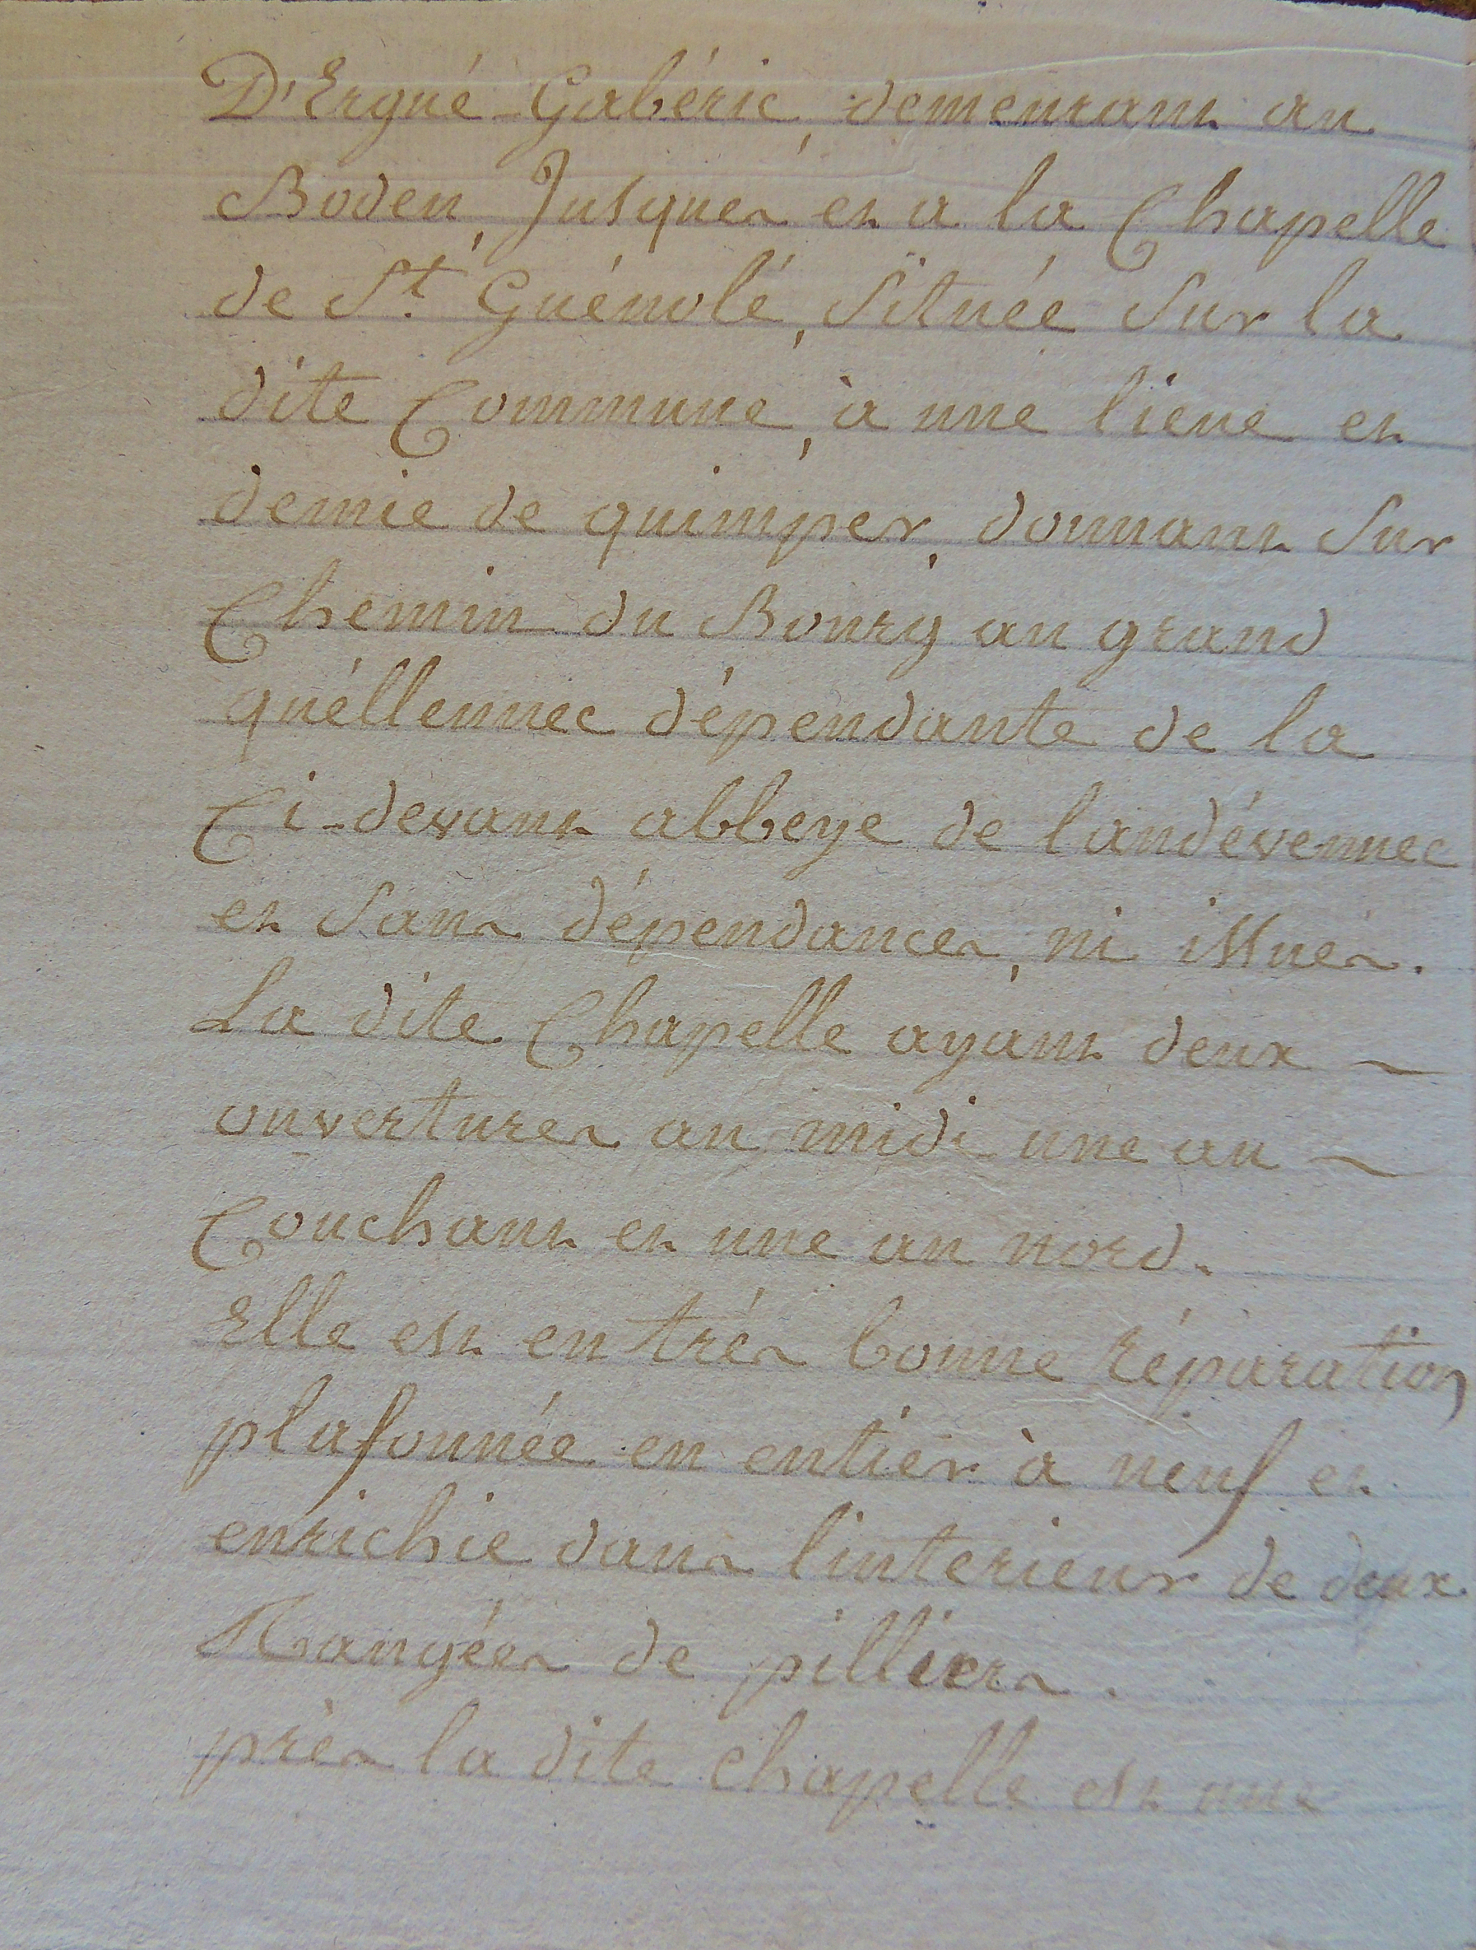 D'Ergué-Gabéric, demeurant au
Boden, Jusques et a la Chapelle
de St. Guénolé, Située Sur la
dite Commune, à une lieue et
demie de quimper, donnant Sur
Chemin du Bourg au grand
quéllennec dépendante de la
Ci-devant abbeye de landévennec
et Sans dépendances, ni issues.
La dite Chapelle ayant deux
ouvertures au midi une au
Couchant et une au nord.
Elle est en trés bonne réparation
plafonnée en entier à neuf et
enrichie dans linterieur de deux
Rangées de pilliers.
près la dite chapelle est une